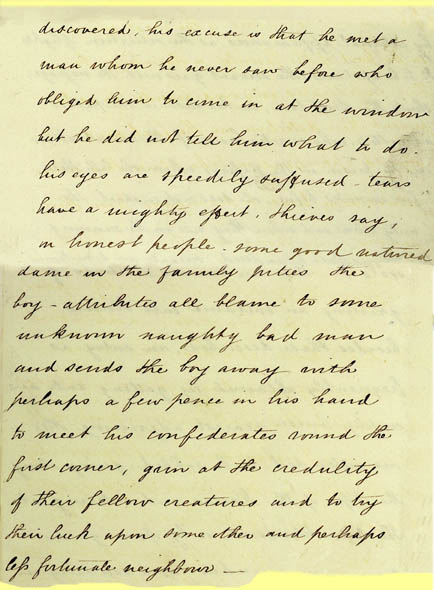 discovered, his excuse is that he met a
man whom he never saw before who
obliged him to come in at the window
but he did not tell him what to do.
his eyes are speedily suffused - tears
have a mighty effect, thieves say,
on honest people - some good natured
dame in the family pities the
boy - attributes all blame to some
unknown naughty bad man
and sends the boy away with
perhaps a few pence in his hand
to meet his confederates round the
first corner, grin at the credulity
of their fellow creatures and to try
their luck upon some other and perhaps
less fortunate neighbour —